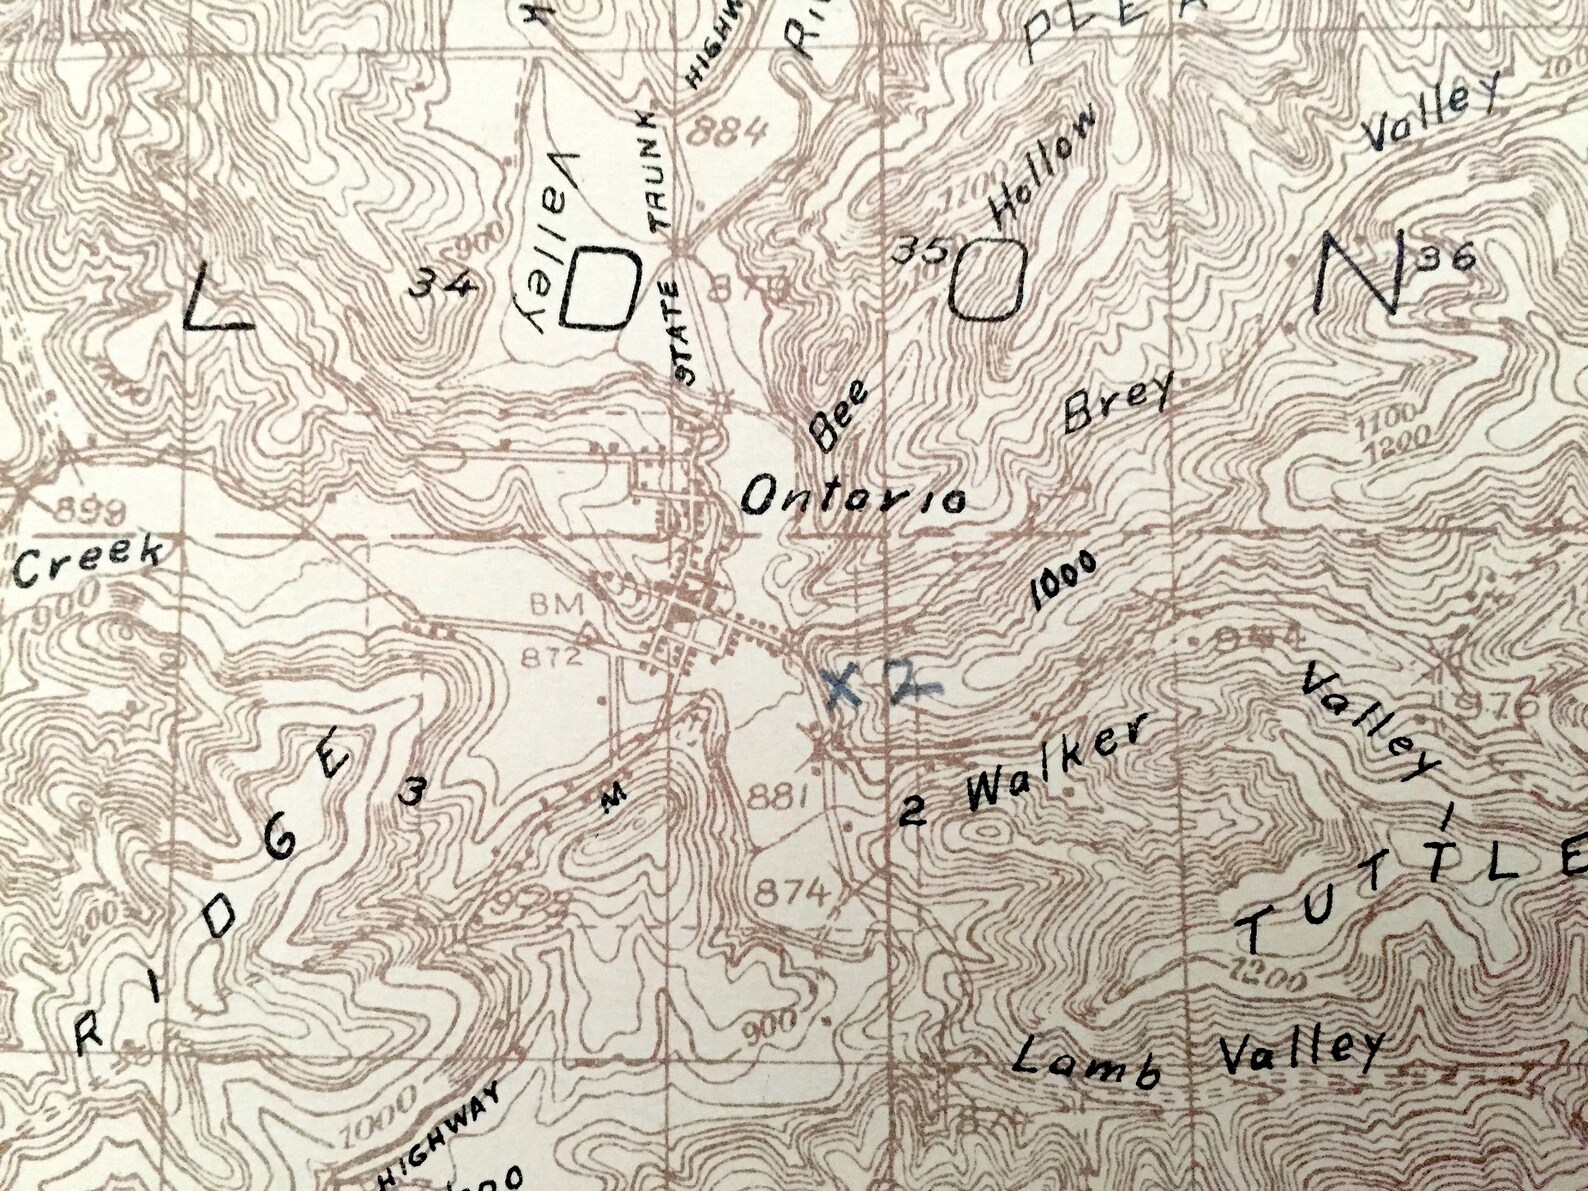 HIGHW
RIV
PLEA
884
TRUNK
Valley
Hollow
1100
Valley
900
34
35
36
L
N
STATE
Bee
Brey
1100
1200
Ontario
899
Creek
900
1000
BM
872
X 2
944
976
Valley
Walker
881
2
3
M
874
TUTTLE
RIDGE
1200
1200
900
Lamb Valley
1000
HIGHWAY